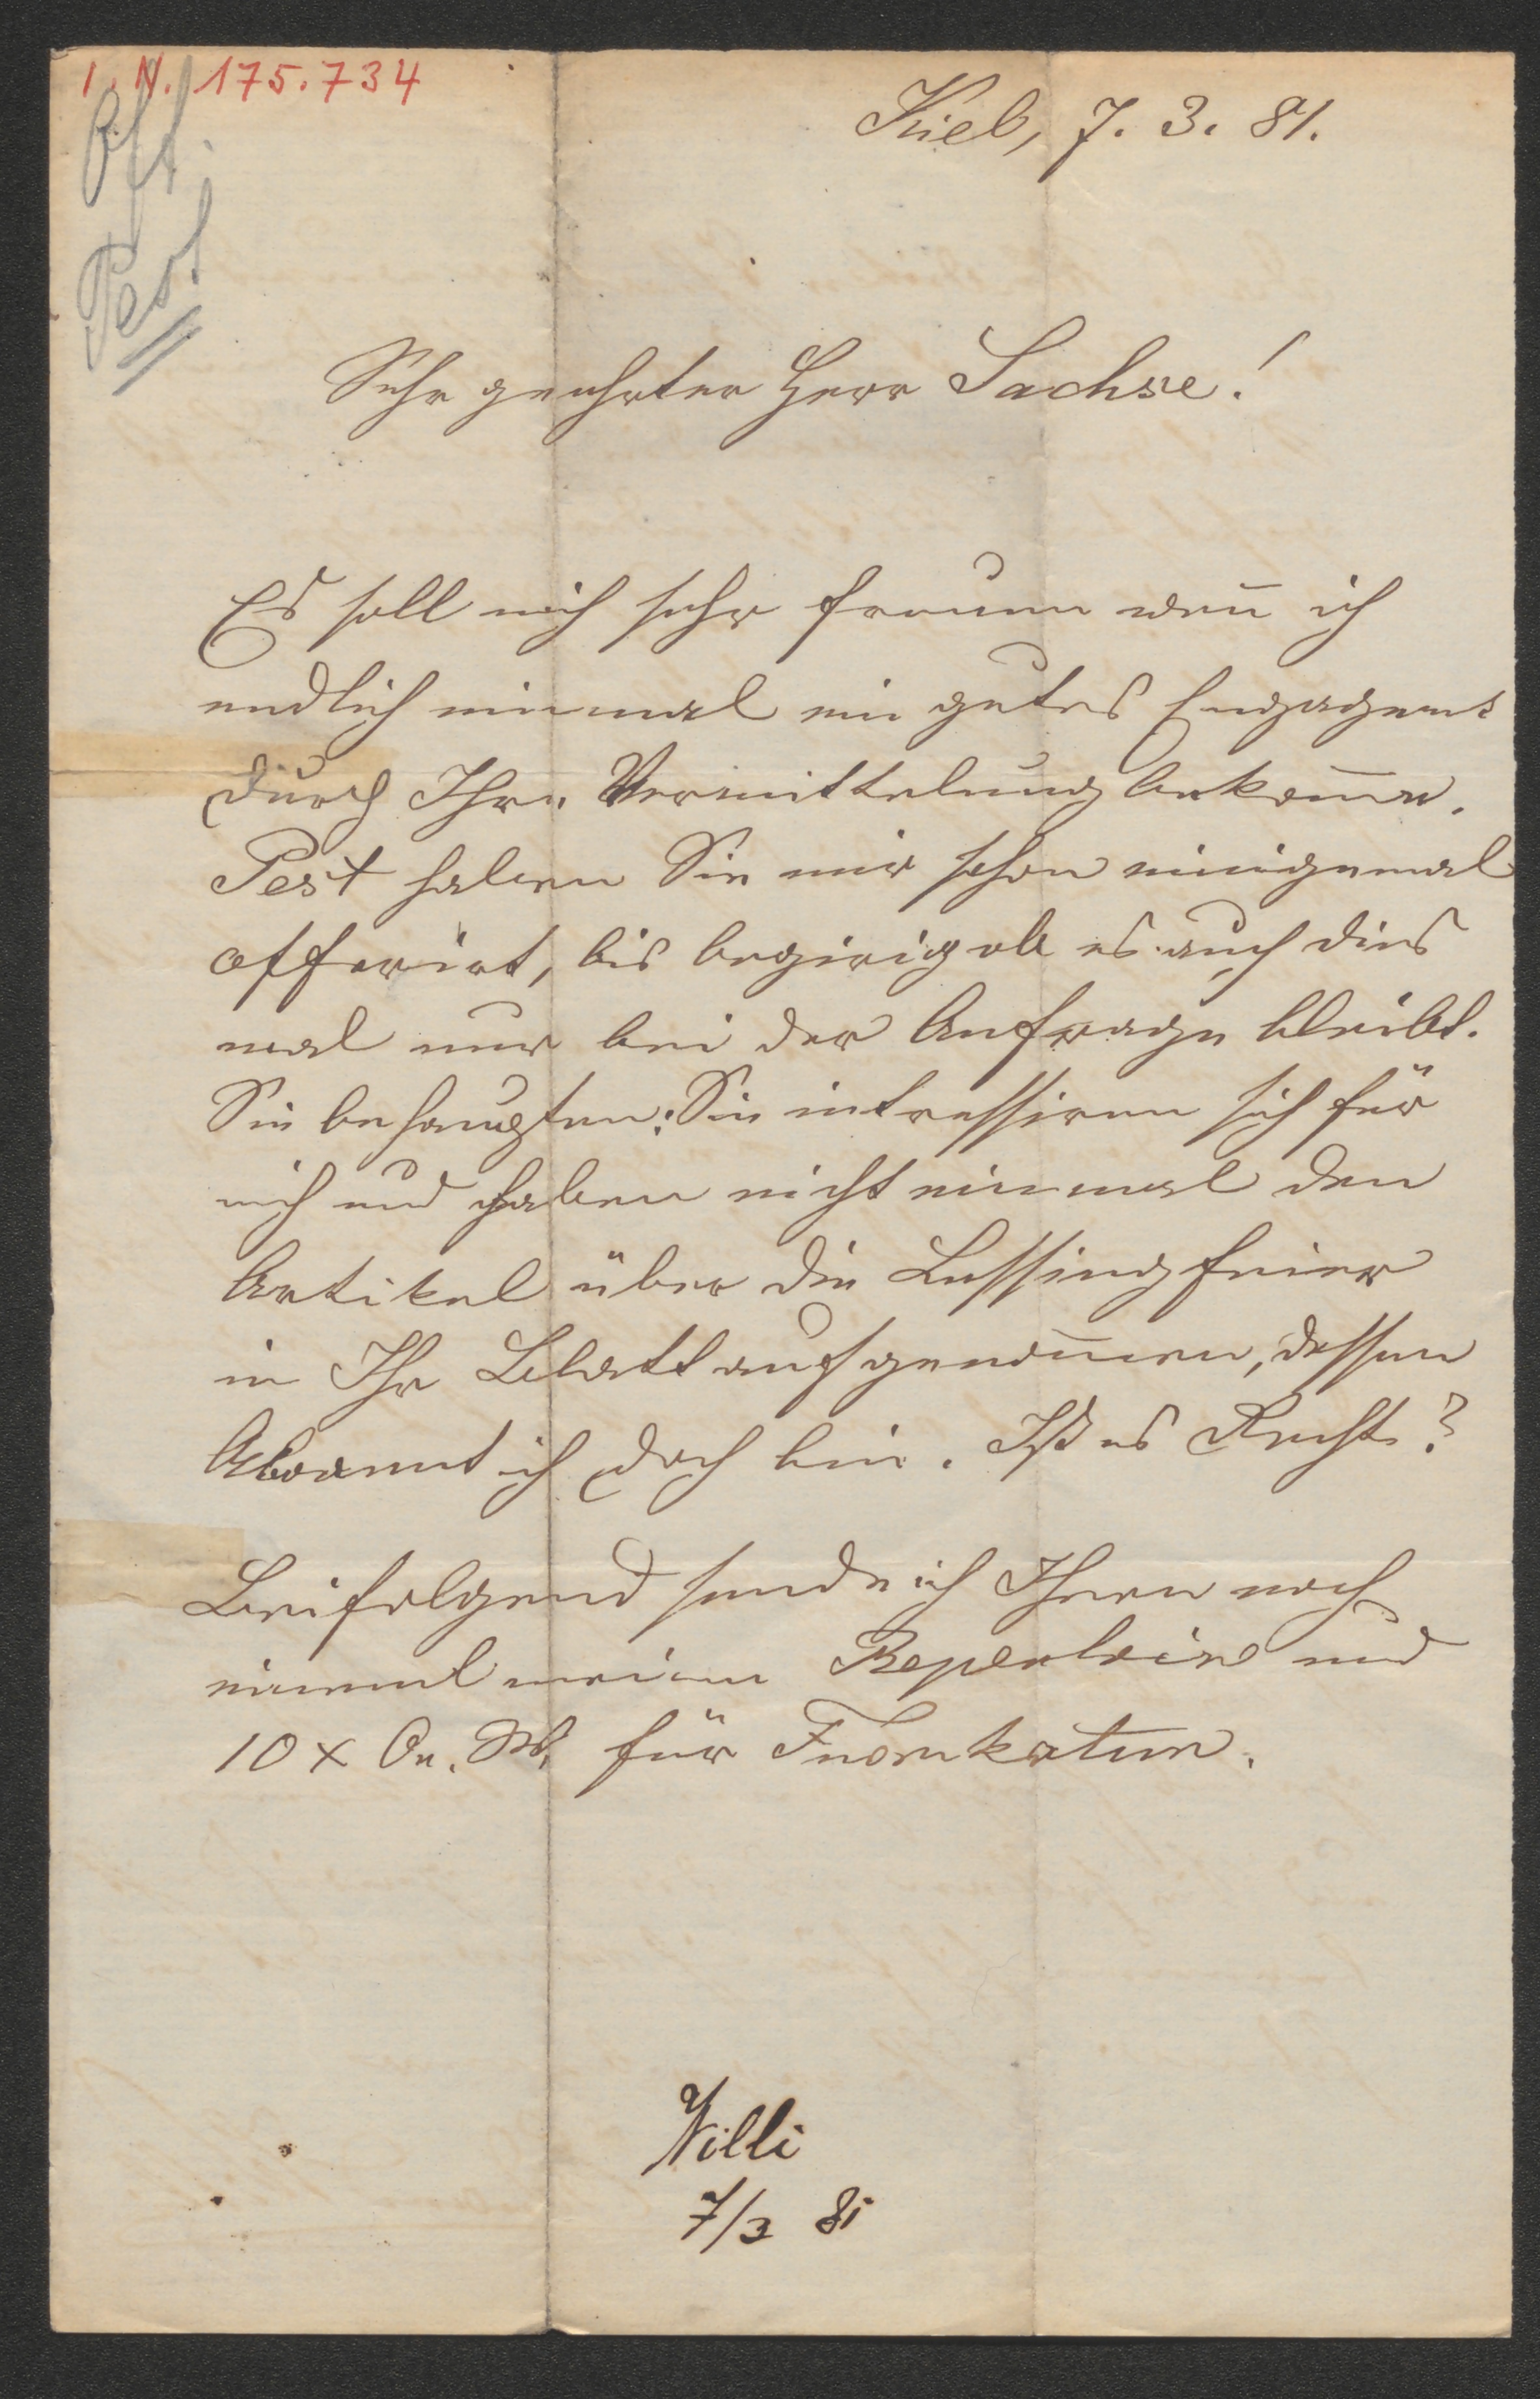 I. N. 175.734
Off.
Pest
Kiel, 7. 3. 81.
Sehr geehrter Herr Sachse!
Es soll mich sehr freuen weñ ich
endlich einmal ein gutes Engagemt
durch Ihre Vermittelung bekom̄e.
Pest haben Sie mir schon einigemal
offerirt, bis begierig ob es auch dies
mal nur bei der Anfrage bleibt.
Sie behaupten: Sie intressiren sich für
mich und haben nicht einmal den
Artikel über die Lessingfeier
in Ihr Blatt aufgenom̄en, dessen
Abonnent ich doch bin. Ist es Recht?
Beifolgend sende ich Ihnen noch
einmal meine Repertoire und
10 x Oe. W. für
Willi
7/3 81